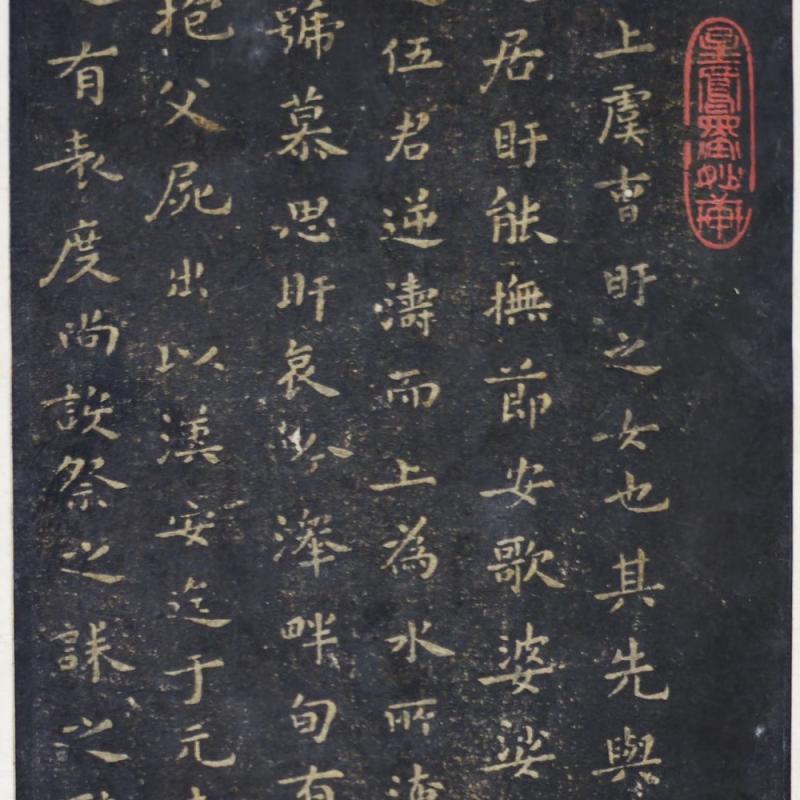 上虞曹盱之女也其先與
居盱能撫節安歌婆娑
伍君逆濤而上為水所淹
號慕思盱哀吟澤畔旬有
抱父屍出以漢安迄于元
有表度尚設祭之誄之